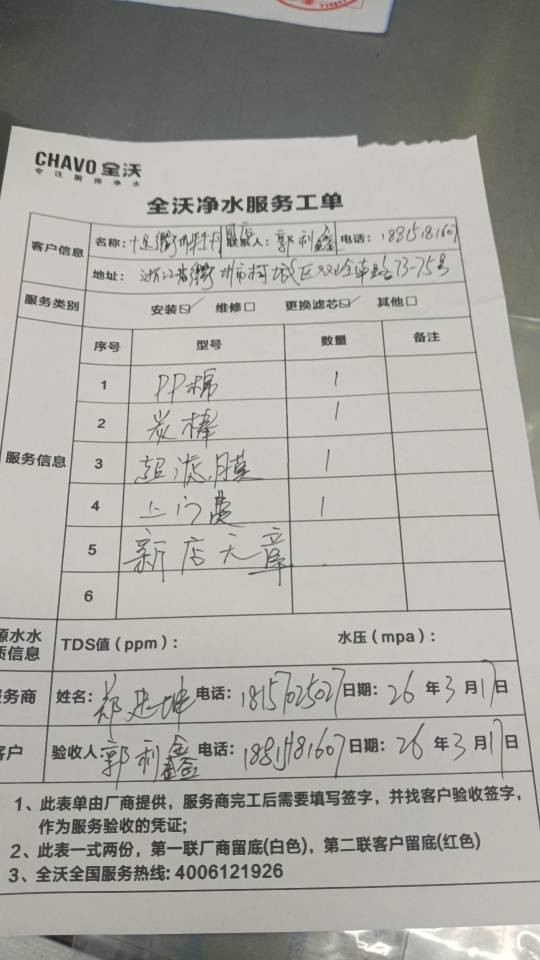 CHAVO 全沃
专注厨房净水
全沃净水服务工单
客户信息 名称: 联系人: 郭利鑫 电话:
地址: 浙江省衢州市柯城区 73-75号
服务类别 安装☑ 维修□ 更换滤芯☑ 其他□
服务信息 序号 型号 数量 备注
1 PP棉 1
2 炭棒 1
3 超滤膜 1
4 上门费 1
5 新店无章
6
源水水质信息 TDS值(ppm): 水压(mpa):
服务商 姓名: 郑建坤 电话: 日期: 26 年 3 月 17 日
客户 验收人: 郭利鑫 电话: 日期: 26 年 3 月 17 日
1、此表单由厂商提供，服务商完工后需要填写签字，并找客户验收签字，
作为服务验收的凭证;
2、此表一式两份，第一联厂商留底(白色)，第二联客户留底(红色)
3、全沃全国服务热线: 4006121926